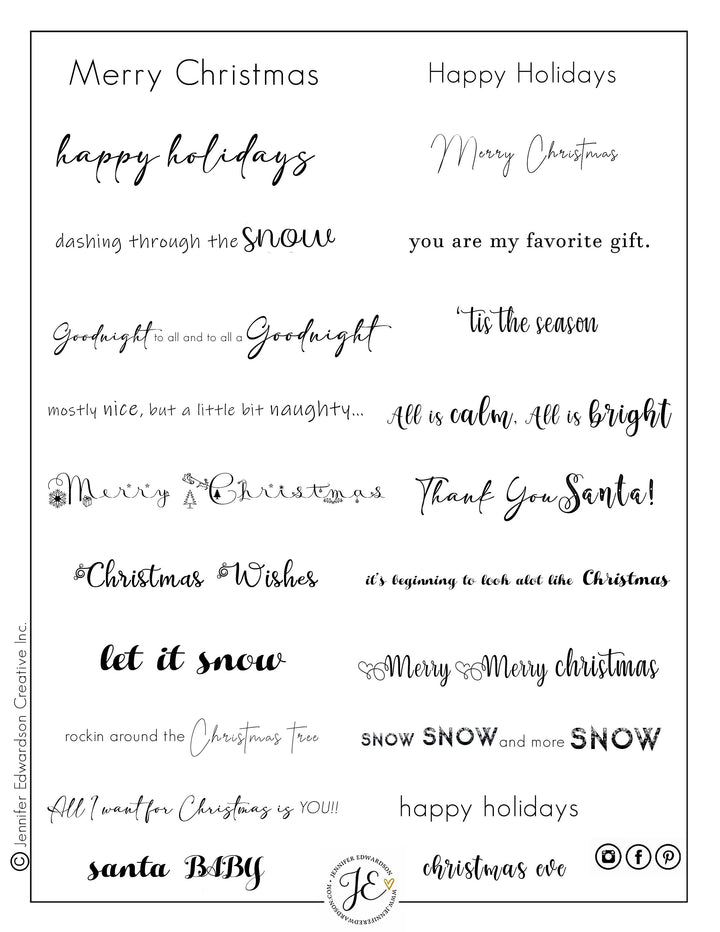 Merry Christmas
Happy Holidays
happy holidays
Merry Christmas
dashing through the snow
you are my favorite gift.
Goodnight to all and to all a Goodnight
'tis the season
mostly nice, but a little bit naughty...
All is calm, All is bright
Merry Christmas
Thank You Santa!
Christmas Wishes
it's beginning to look alot like Christmas
let it snow
Merry Merry christmas
rockin around the Christmas Tree
SNOW SNOW and more SNOW
All I want for Christmas is YOU!!
happy holidays
santa BABY
christmas eve
© Jennifer Edwardson Creative Inc.
JENNIFER EDWARDSON
JE
WWW.JENNIFEREDWARDSON.COM